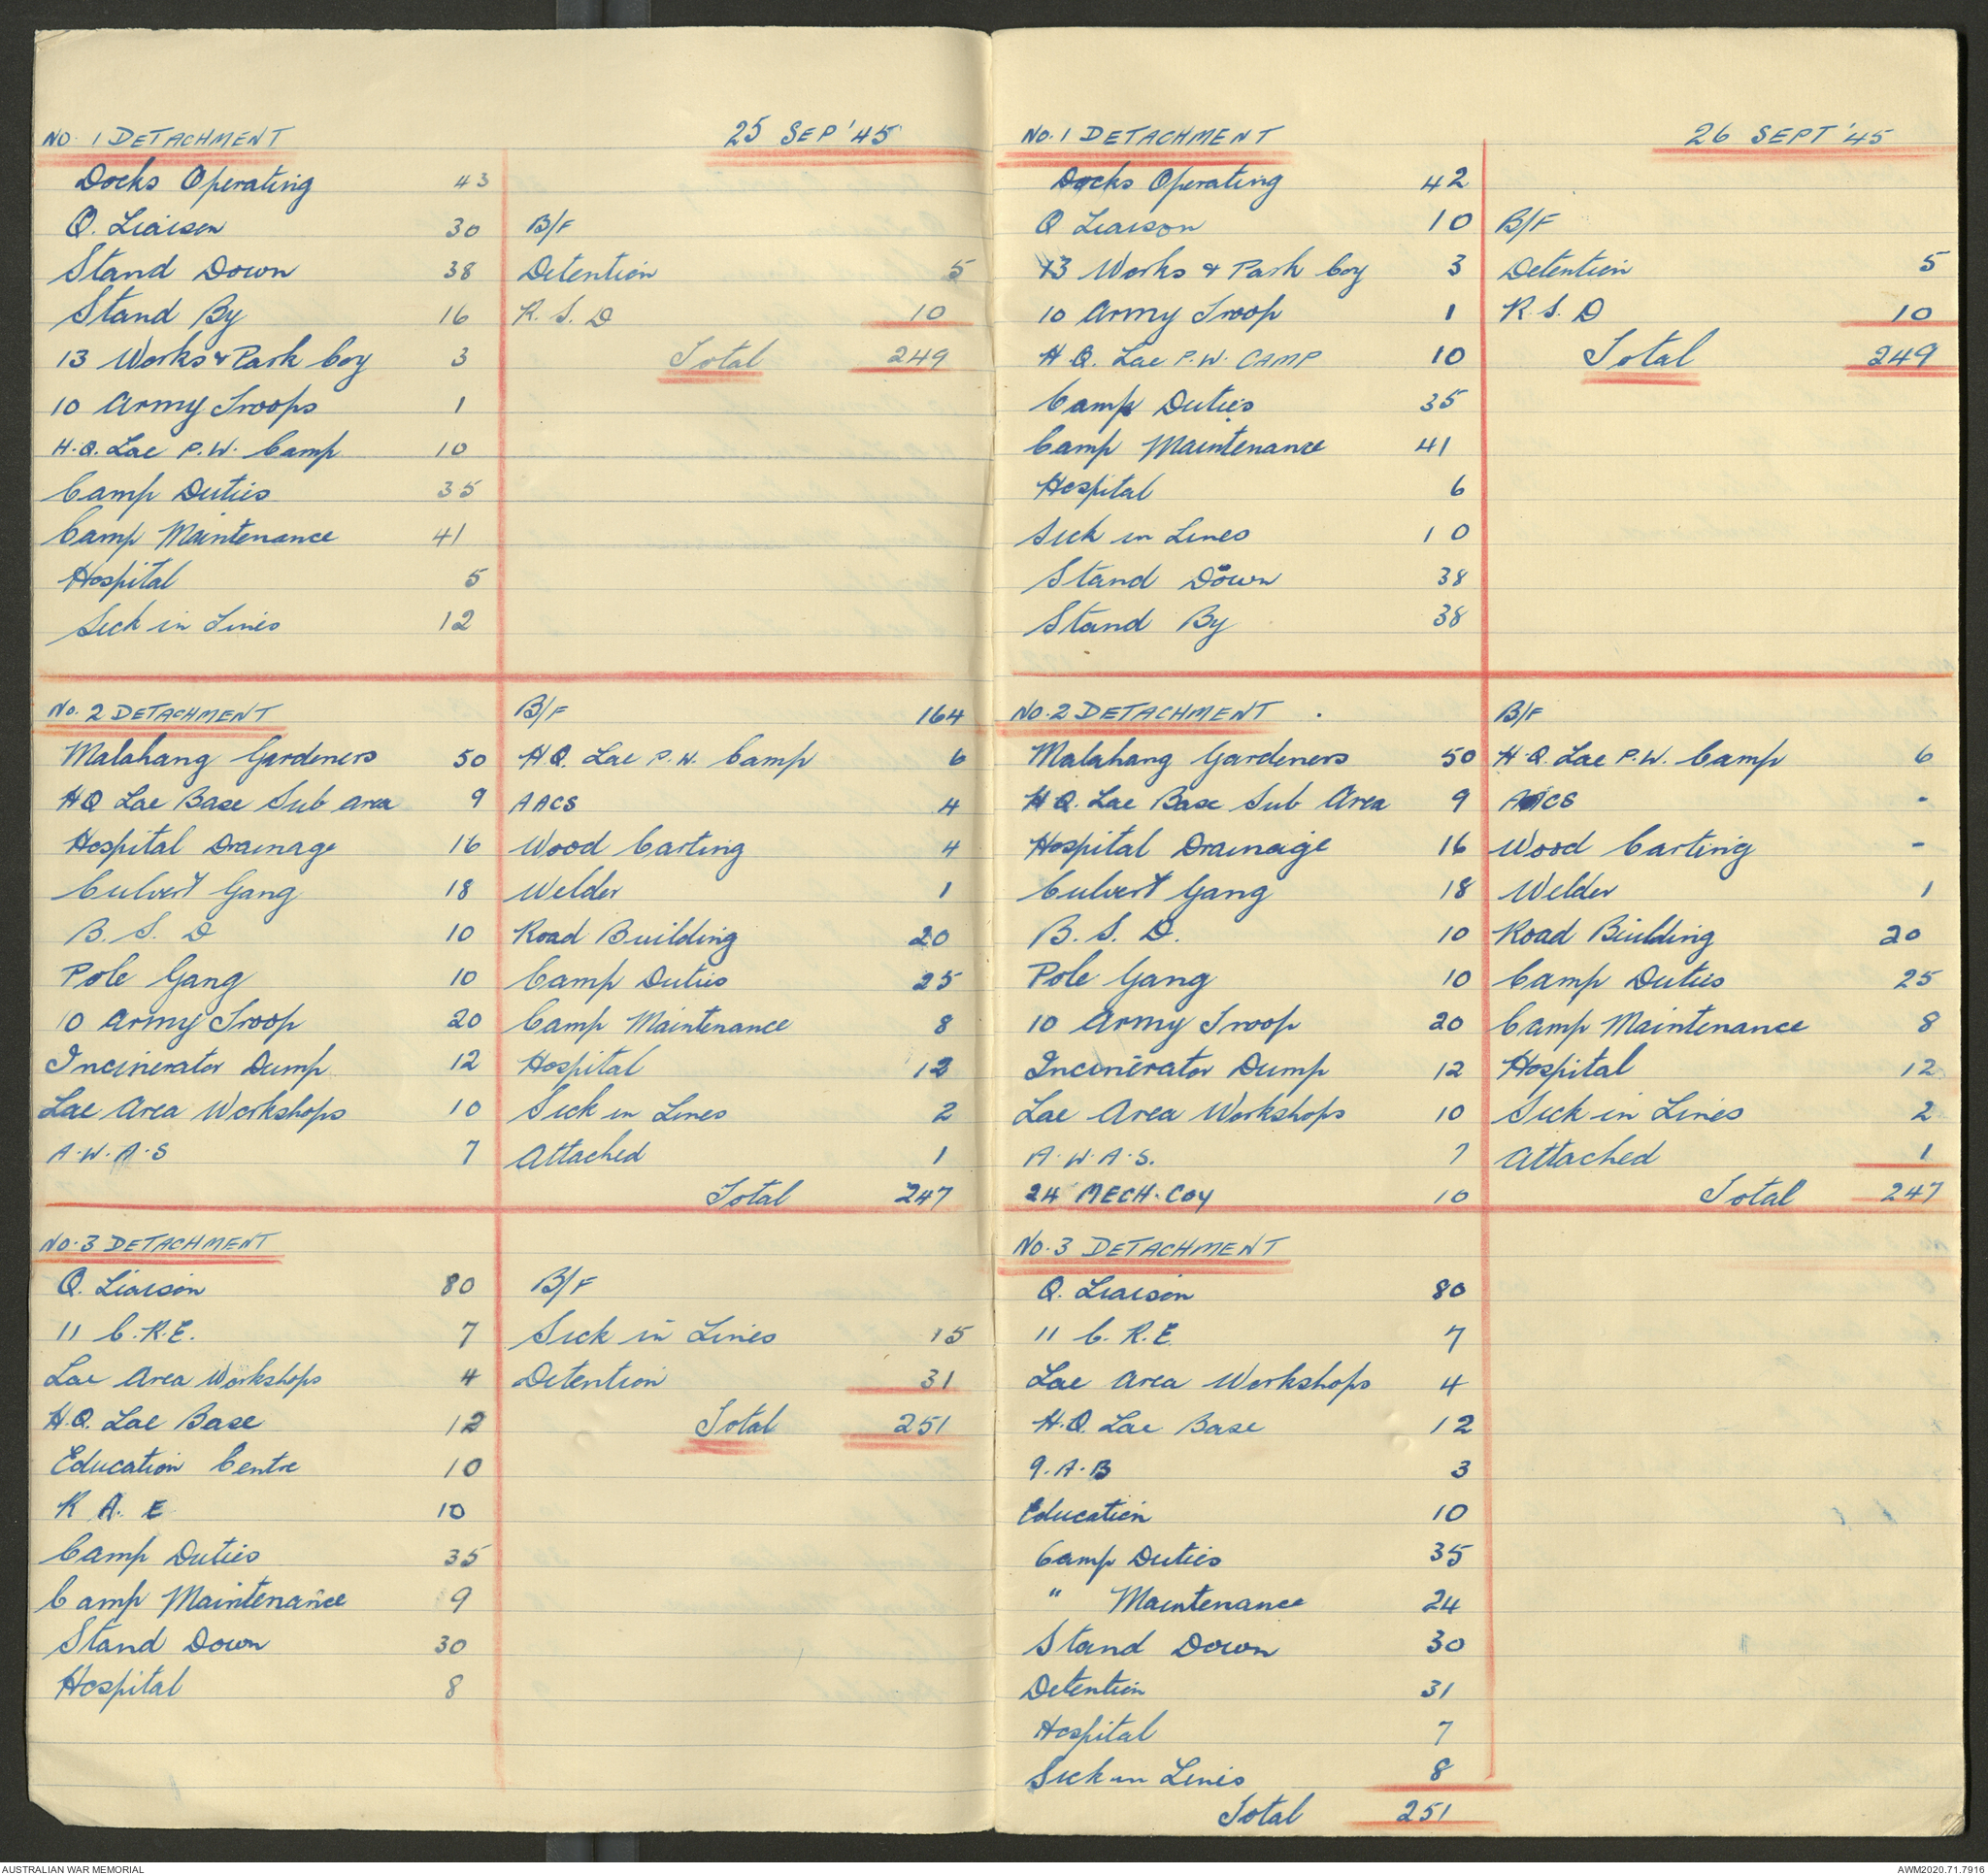 NO. 1 DETACHMENT 25 SEP '45
Docks Operating 43
Q. Liaison 30 B/F
Stand Down 38 Detention 5
Stand By 16 R. S. D 10
13 Works & Park Coy 3 Total 249
10 Army Troops 1
H.Q. Lae P.W. Camp 10
Camp Duties 35
Camp Maintenance 41
Hospital 5
Sick in Lines 12
No. 2 DETACHMENT B/F 164
Malahang Gardeners 50 H.Q. Lae P.W. Camp 6
HQ Lae Base Sub Area 9 AACS 4
Hospital Drainage 16 Wood Carting 4
Culvert Gang 18 Welder 1
B. S. D 10 Road Building 20
Pole Gang 10 Camp Duties 25
10 Army Troop 20 Camp Maintenance 8
Incinerator Dump 12 Hospital 12
Lae Area Workshops 10 Sick in Lines 2
A.W.A.S 7 Attached 1
Total 247
NO. 3 DETACHMENT
Q. Liaison 80 B/F
11 C.R.E. 7 Sick in Lines 15
Lae Area Workshops 4 Detention 31
H.Q. Lae Base 12 Total 251
Education Centre 10
R A. E 10
Camp Duties 35
Camp Maintenance 9
Stand Down 30
Hospital 8
No. 1 DETACHMENT 26 SEPT '45
Docks Operating 42
Q Liaison 10 B/F
13 Works & Park Coy 3 Detention 5
10 Army Troop 1 R. S. D 10
H.Q. Lae P.W. CAMP 10 Total 249
Camp Duties 35
Camp Maintenance 41
Hospital 6
Sick in Lines 10
Stand Down 38
Stand By 38
NO. 2 DETACHMENT B/F
Malahang Gardeners 50 H.Q. Lae P.W. Camp 6
H.Q. Lae Base Sub Area 9 AACS -
Hospital Drainage 16 Wood Carting -
Culvert Gang 18 Welder 1
B. S. D. 10 Road Building 20
Pole Gang 10 Camp Duties 25
10 Army Troop 20 Camp Maintenance 8
Incinerator Dump 12 Hospital 12
Lae Area Workshops 10 Sick in Lines 2
A.W.A.S. 7 Attached 1
24 MECH. COY 10 Total 247
No. 3 DETACHMENT
Q. Liaison 80
11 C. R. E. 7
Lae Area Workshops 4
H.Q. Lae Base 12
9.A.B 3
Education 10
Camp Duties 35
" Maintenance 24
Stand Down 30
Detention 31
Hospital 7
Sick in Lines 8
Total 251
AUSTRALIAN WAR MEMORIAL AWM2020.71.7916